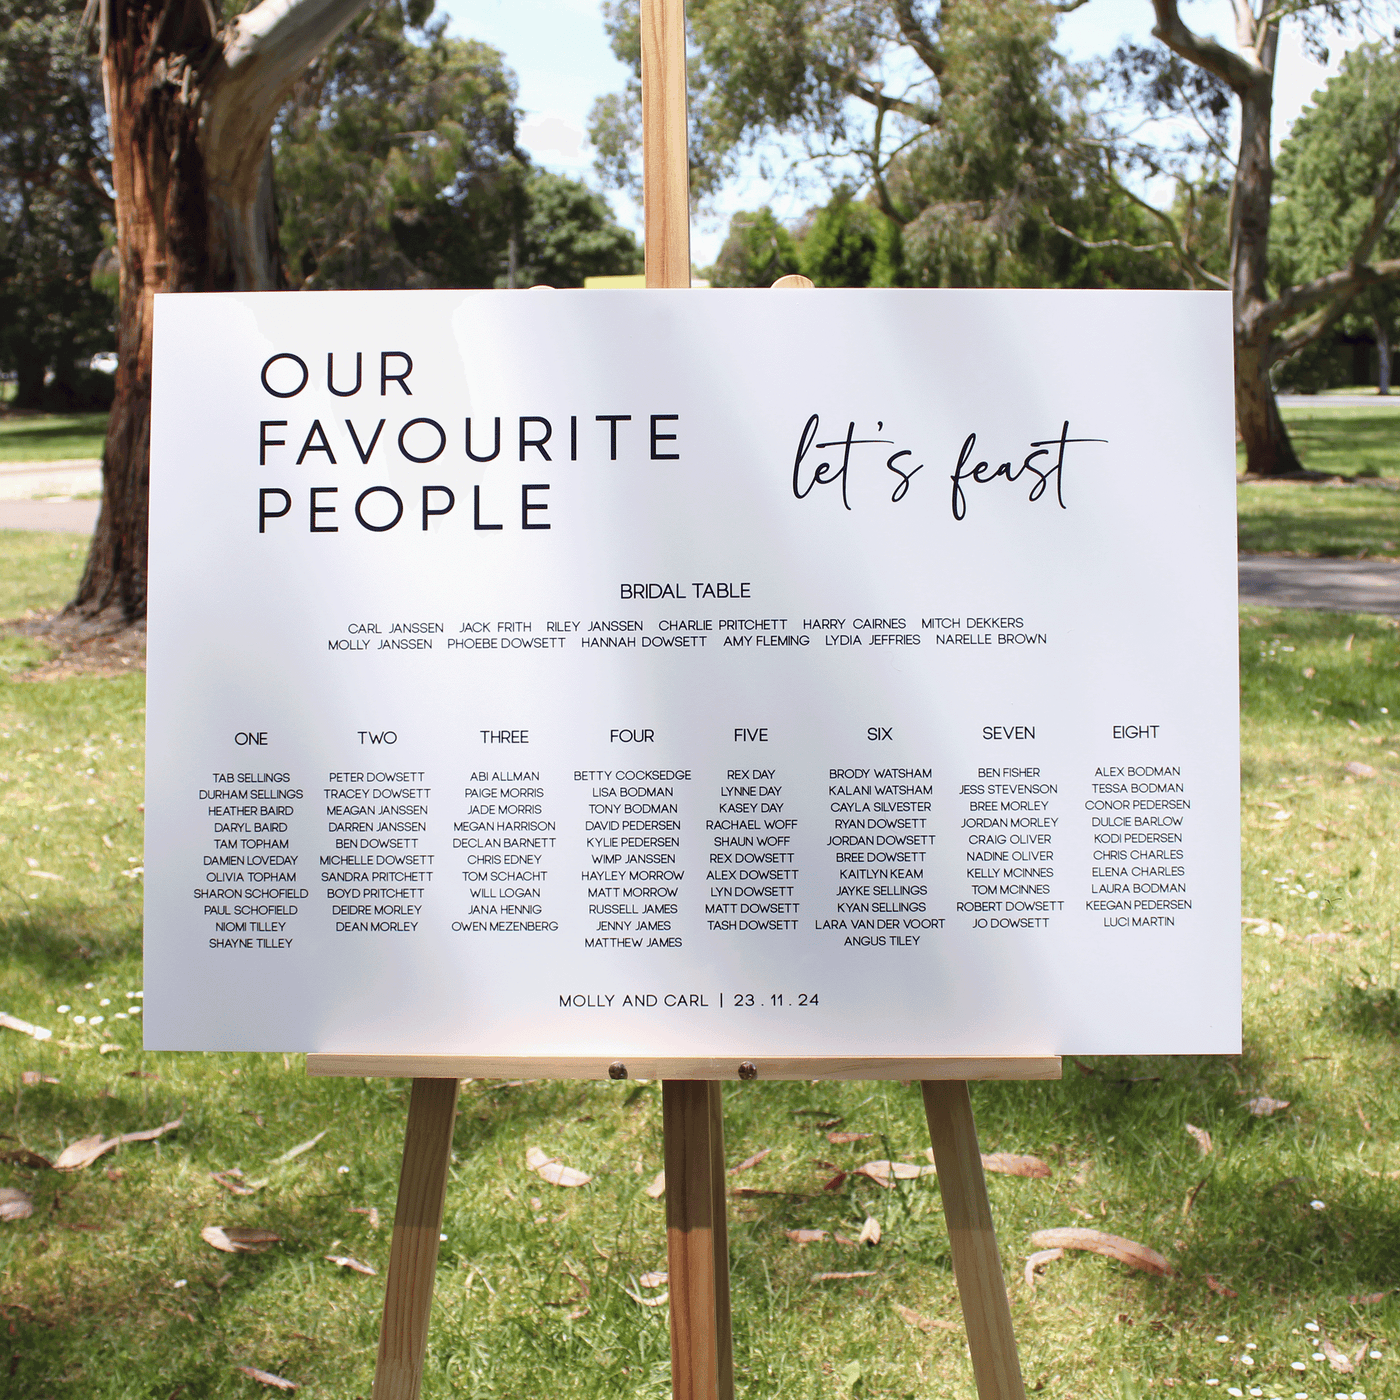 OUR
FAVOURITE
PEOPLE
let's feast
BRIDAL TABLE
CARL JANSSEN JACK FRITH RILEY JANSSEN CHARLIE PRITCHETT HARRY CAIRNES MITCH DEKKERS
MOLLY JANSSEN PHOEBE DOWSETT HANNAH DOWSETT AMY FLEMING LYDIA JEFFRIES NARELLE BROWN
ONE
TAB SELLINGS
DURHAM SELLINGS
HEATHER BAIRD
DARYL BAIRD
TAM TOPHAM
DAMIEN LOVEDAY
OLIVIA TOPHAM
SHARON SCHOFIELD
PAUL SCHOFIELD
NIOMI TILLEY
SHAYNE TILLEY
TWO
PETER DOWSETT
TRACEY DOWSETT
MEAGAN JANSSEN
DARREN JANSSEN
BEN DOWSETT
MICHELLE DOWSETT
SANDRA PRITCHETT
BOYD PRITCHETT
DEIDRE MORLEY
DEAN MORLEY
THREE
ABI ALLMAN
PAIGE MORRIS
JADE MORRIS
MEGAN HARRISON
DECLAN BARNETT
CHRIS EDNEY
TOM SCHACHT
WILL LOGAN
JANA HENNIG
OWEN MEZENBERG
FOUR
BETTY COCKSEDGE
LISA BODMAN
TONY BODMAN
DAVID PEDERSEN
KYLIE PEDERSEN
WIMP JANSSEN
HAYLEY MORROW
MATT MORROW
RUSSELL JAMES
JENNY JAMES
MATTHEW JAMES
FIVE
REX DAY
LYNNE DAY
KASEY DAY
RACHAEL WOFF
SHAUN WOFF
REX DOWSETT
ALEX DOWSETT
LYN DOWSETT
MATT DOWSETT
TASH DOWSETT
SIX
BRODY WATSHAM
KALANI WATSHAM
CAYLA SILVESTER
RYAN DOWSETT
JORDAN DOWSETT
BREE DOWSETT
KAITLYN KEAM
JAYKE SELLINGS
KYAN SELLINGS
LARA VAN DER VOORT
ANGUS TILEY
SEVEN
BEN FISHER
JESS STEVENSON
BREE MORLEY
JORDAN MORLEY
CRAIG OLIVER
NADINE OLIVER
KELLY MCINNES
TOM MCINNES
ROBERT DOWSETT
JO DOWSETT
EIGHT
ALEX BODMAN
TESSA BODMAN
CONOR PEDERSEN
DULCIE BARLOW
KODI PEDERSEN
CHRIS CHARLES
ELENA CHARLES
LAURA BODMAN
KEEGAN PEDERSEN
LUCI MARTIN
MOLLY AND CARL | 23 . 11 . 24